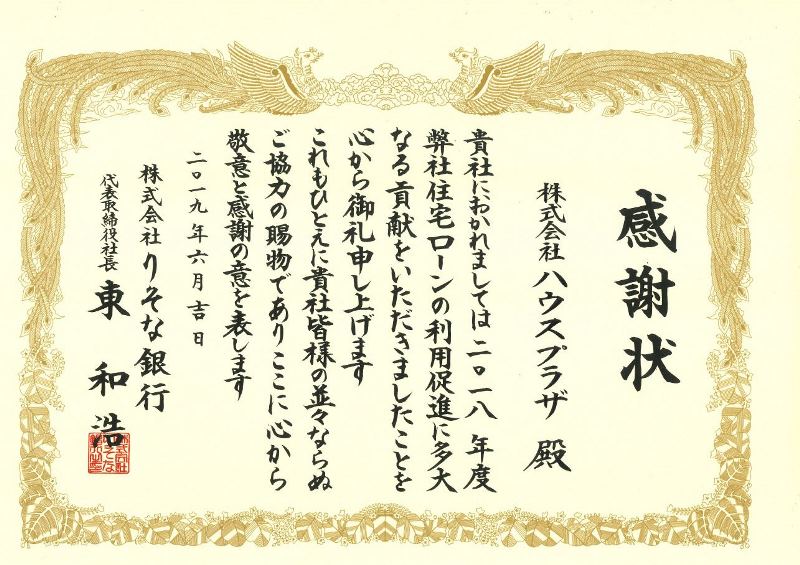 感謝状
株式会社 ハウスプラザ 殿
貴社におかれましては二〇一八年度
弊社住宅ローンの利用促進に多大
なる貢献をいただきましたことを
心から御礼申し上げます
これもひとえに貴社皆様の並々ならぬ
ご協力の賜物でありここに心から
敬意と感謝の意を表します
二〇一九年六月吉日
株式会社 りそな銀行
代表取締役社長 東 和浩